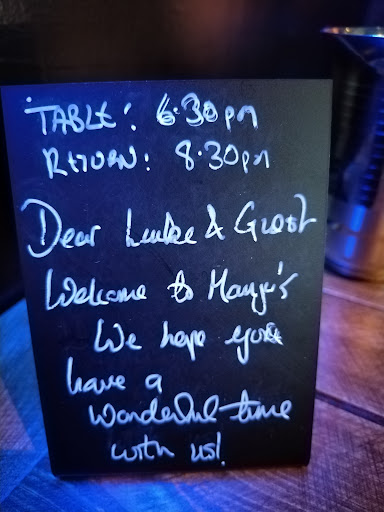 TABLE: 6.30pm
RETURN: 8.30pm
Dear Luke & Guest
Welcome to Manju's
We hope you
have a
wonderful time
with us!